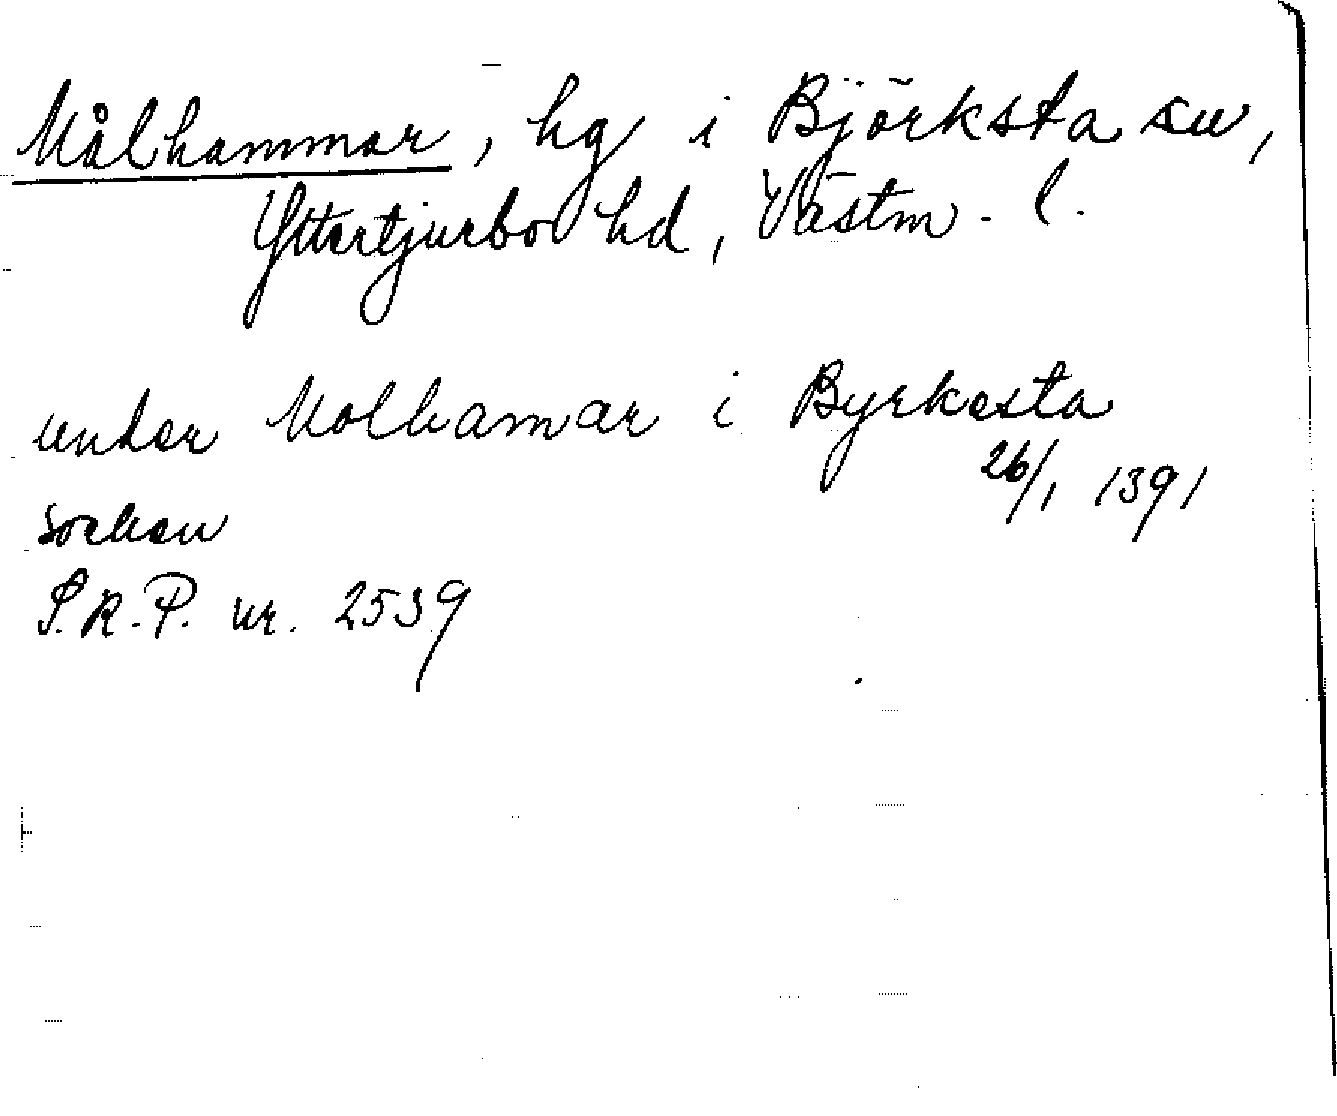 Målhammar, hg i Björksta sn,
Yttertjurbo hd, Västm. l.
under Molhamar i Byrkesta
26/1 1391
Sochen
S.R.P. nr. 2539